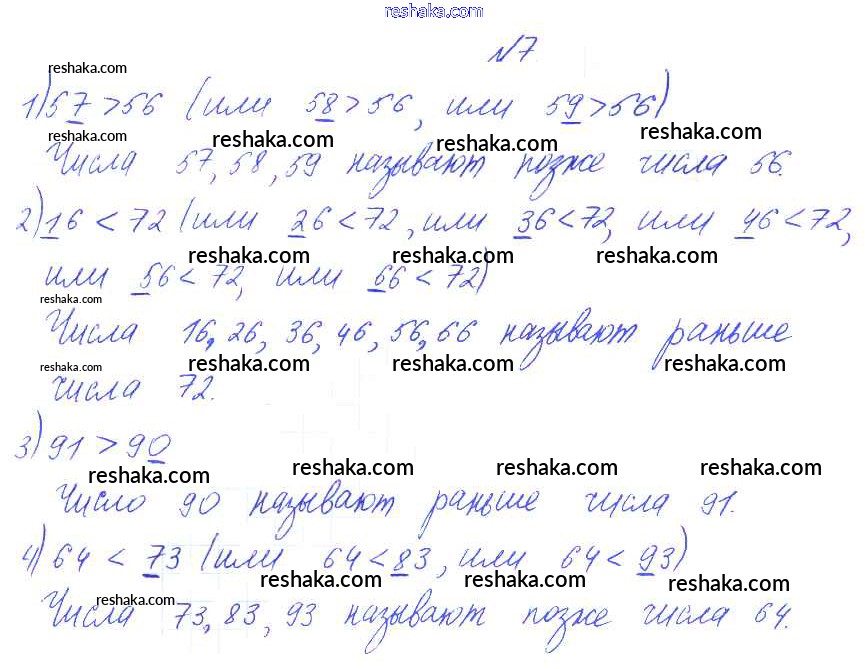 reshaka.com
№7
reshaka.com
1) 57 > 56 (или 58 > 56, или 59 > 56)
reshaka.com reshaka.com reshaka.com reshaka.com
Числа 57, 58, 59 называют позже числа 56.
2) 16 < 72 (или 26 < 72, или 36 < 72, или 46 < 72,
reshaka.com reshaka.com reshaka.com
или 56 < 72, или 66 < 72)
reshaka.com
Числа 16, 26, 36, 46, 56, 66 называют раньше
reshaka.com reshaka.com reshaka.com reshaka.com
числа 72.
3) 91 > 90
reshaka.com reshaka.com reshaka.com reshaka.com
Число 90 называют раньше числа 91.
4) 64 < 73 (или 64 < 83, или 64 < 93)
reshaka.com reshaka.com reshaka.com reshaka.com
Числа 73, 83, 93 называют позже числа 64.